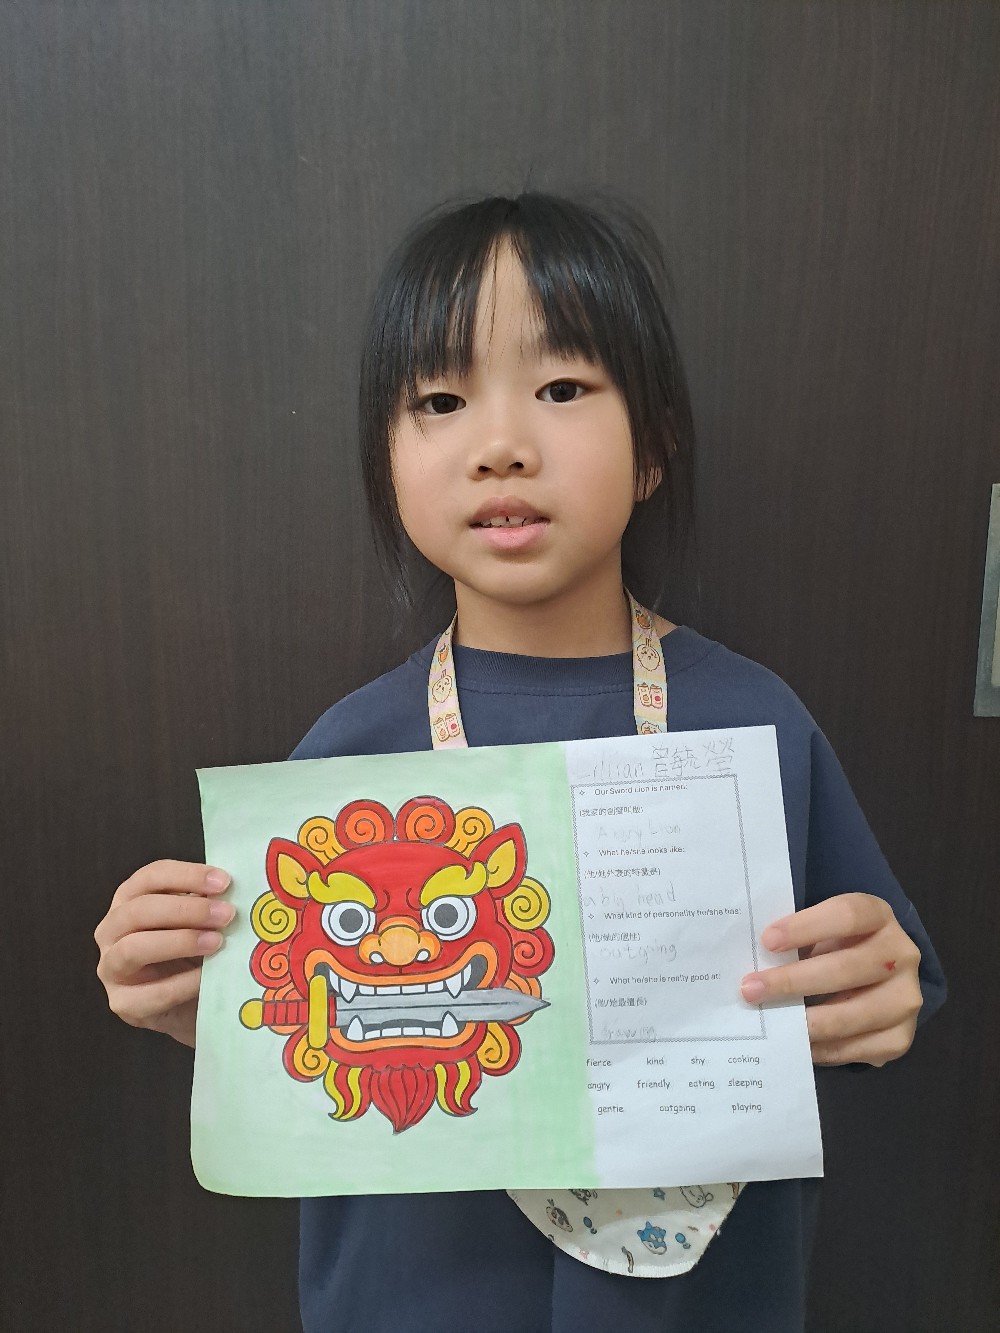 Lillian 曾毓瑩
✧ Our Sword Lion is named:
(我家的劍獅叫做)
Angry Lion
✧ What he/she looks like:
(他/她外表的特徵是)
a big head
✧ What kind of personality he/she has:
(他/她的個性)
outgoing
✧ What he/she is really good at:
(他/她最擅長)
drawing
fierce kind shy cooking
angry friendly eating sleeping
gentle outgoing playing